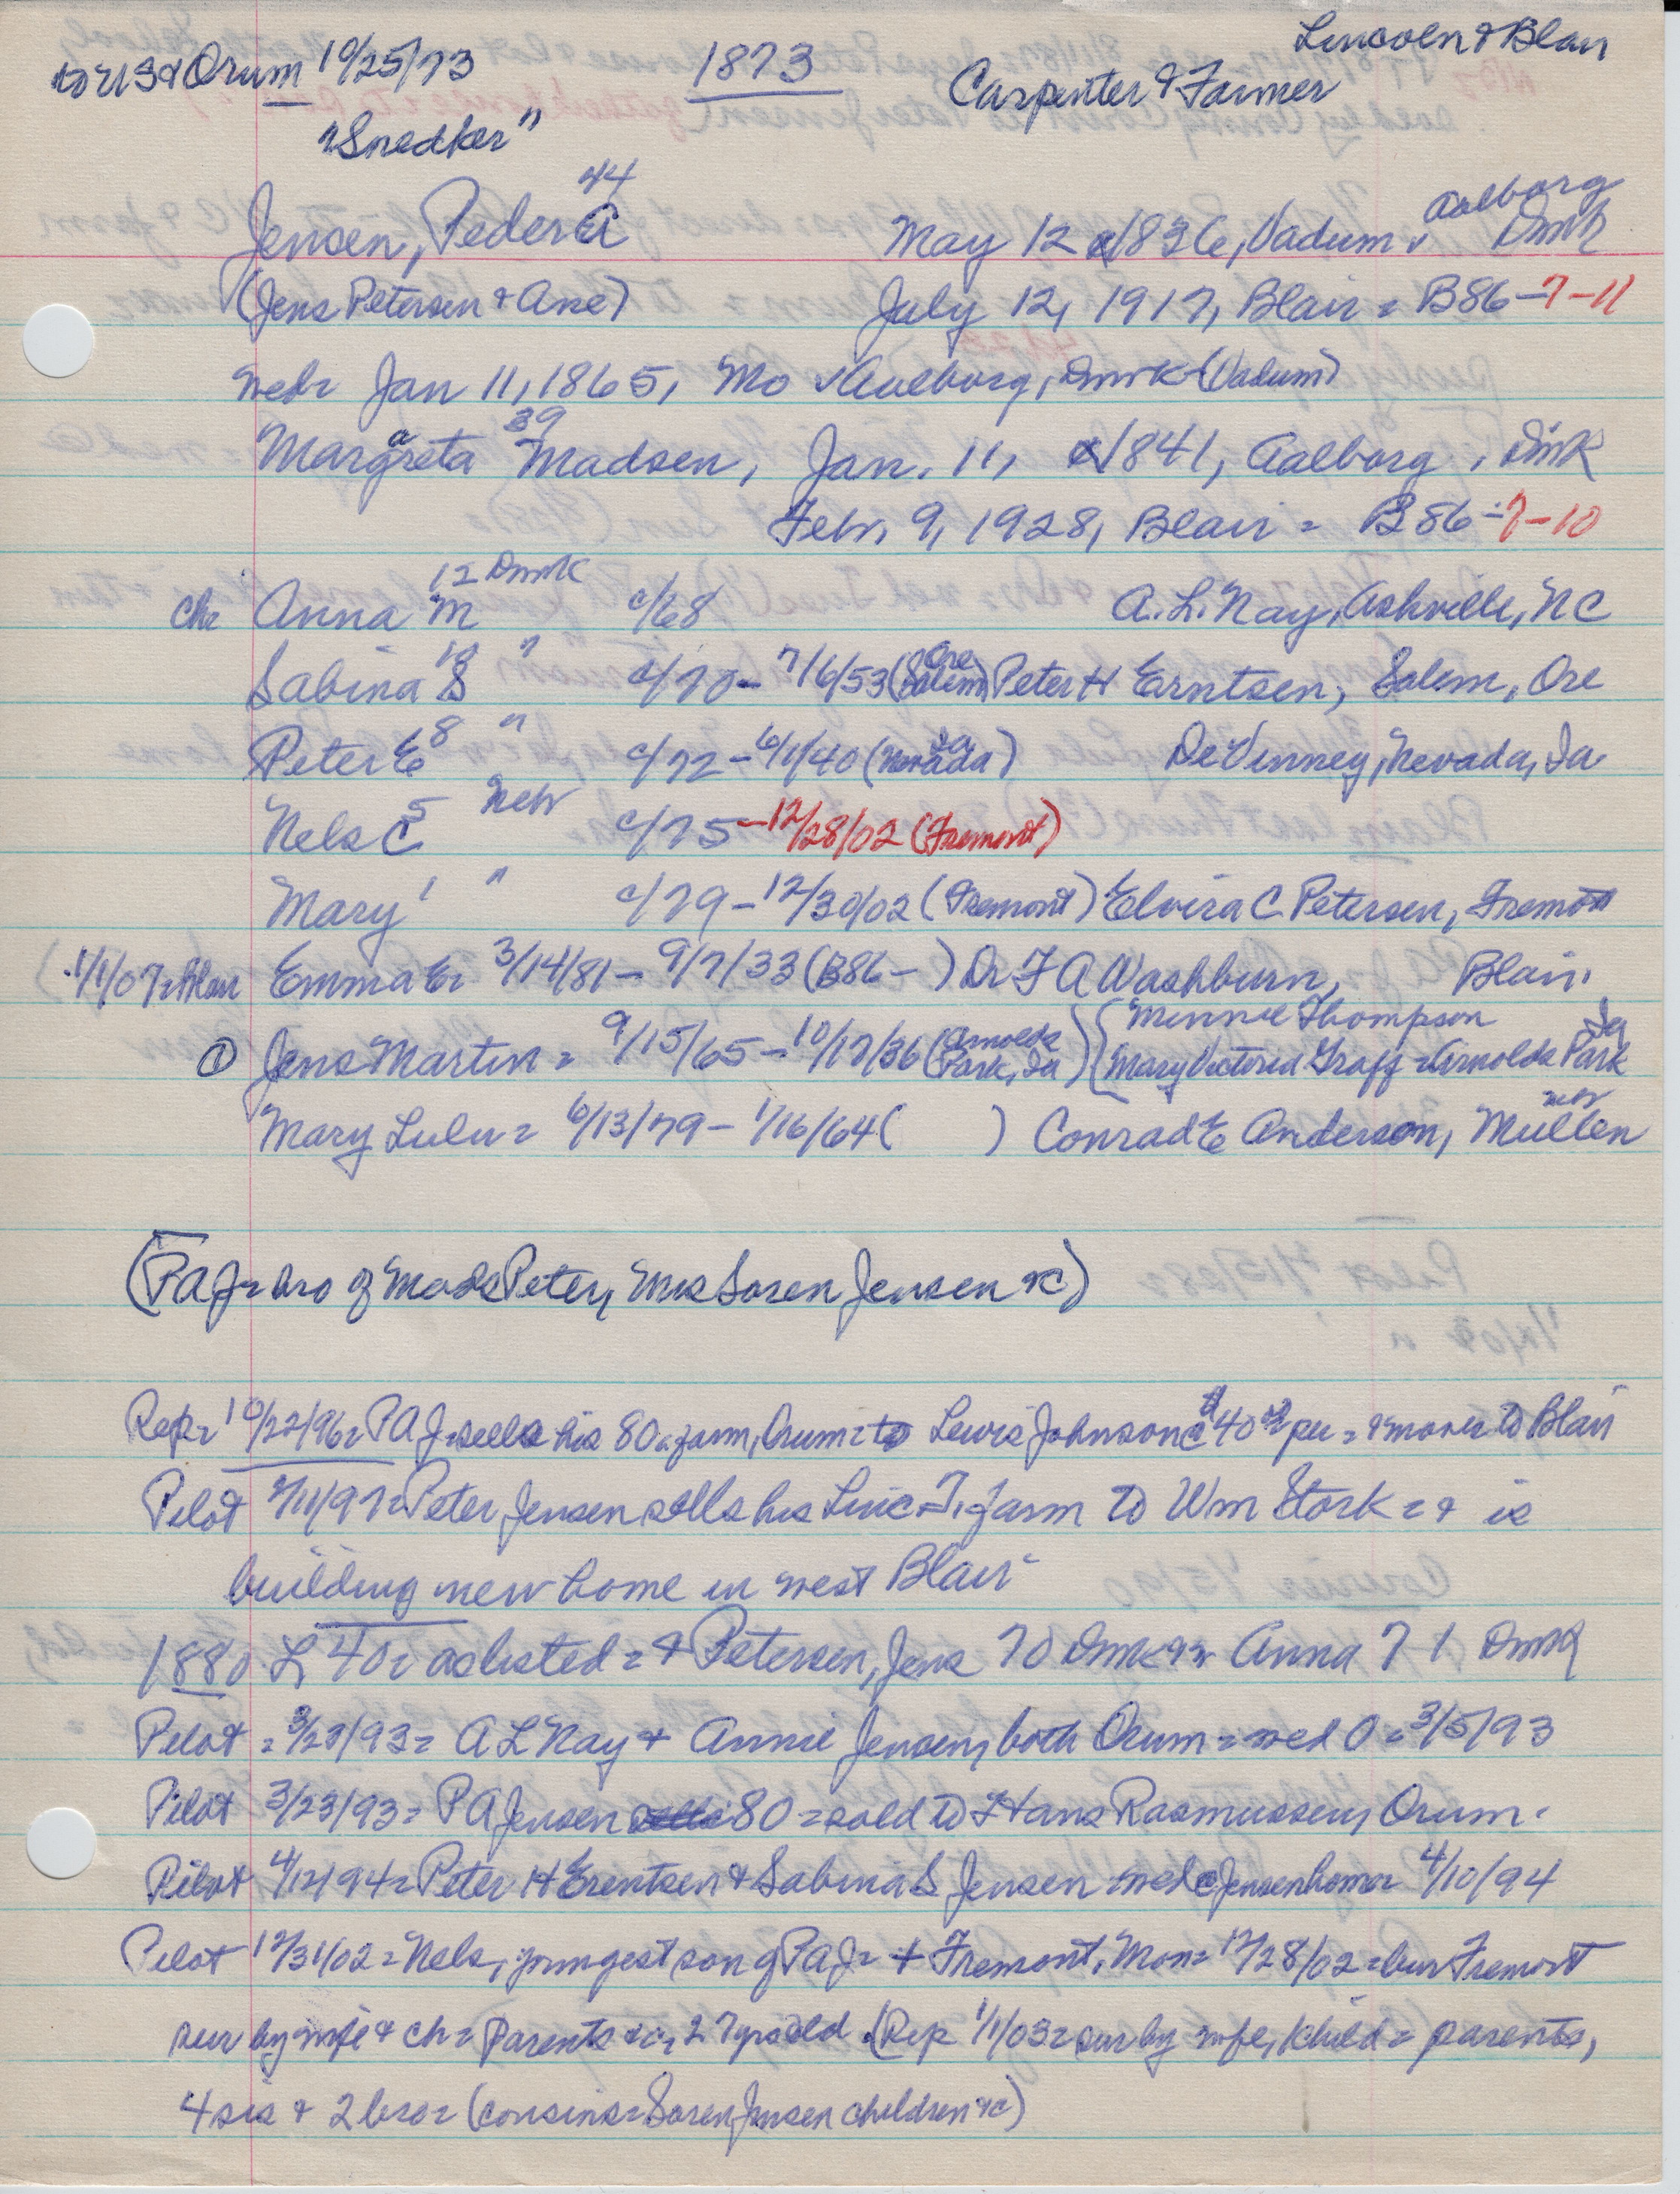 to US & Orum 10/25/73 1873 Lincoln & Blair
Carpenter & Farmer
"Snedker"
Jensen, Peder A 44 May 12 1836, Vadum, Aalborg Dmk
(Jens Petersen & Ane) July 12, 1917, Blair = B86-7-11
Jan 11, 1865, Mo Aalborg, Dmrk (Vadum)
Margreta 39 Madsen, Jan. 11, 1841, Aalborg, Dmk
Febr. 9, 1928, Blair = B86-7-10
ch: Anna M 12 Dmrk c/68 A. L. Nay, Ashville, NC
Sabina S 10 " c/70 - 7/6/53 (Salem Ore) Peter H Erntsen, Salem, Ore
Peter E 8 " c/72 - 6/1/40 (Nevada Ia) DeVinney, Nevada, Ia
Nels C 5 Nebr c/75 - 12/28/02 (Fremont)
Mary 1 " c/79 - 12/30/02 (Fremont) Elvira C Petersen, Fremont
1/1/07 = Emma E = 3/14/81 - 9/7/33 (B86- ) Dr F A Washburn, Blair.
① Jens Martin = 9/15/65 - 10/17/36 (Arnolds Park, Ia) { Minnie Thompson
Mary Victoria Graff = Arnolds Park Ia
Mary Lulu = 6/13/79 - 1/16/64 ( ) Conrad E Anderson, Mullen Nebr
(PAJ = bro of Mads Peter, Mrs Soren Jensen &c)
Rep = 10/22/96 = PAJ = sells his 80 a farm, Orum = to Lewis Johnson @ $40 00 per = & moves to Blair
Pilot 2/11/97 = Peter Jensen sells his Linc T. farm to Wm Stork = & is
building new home in west Blair
1880 L 40 = as listed = & Petersen, Jens 70 Dmk Anna 71 Dmk
Pilot = 3/23/93 = A L Nay & Annie Jensen, both Orum = wed O = 3/5/93
Pilot 3/23/93 = PA Jensen 80 = sold to Hans Rasmussen, Orum.
Pilot 4/12/94 = Peter H Erentsen & Sabina S Jensen wed @ Jensen home = 4/10/94
Pilot 12/31/02 = Nels, youngest son of PAJ = + Fremont, Mon = 12/28/02 = bur Fremont
sur by wife & ch = Parents &c, 27 yrs old. (Rep 1/1/03 = sur by wife, 1 child = parents,
4 sis & 2 bro = (cousins = Soren Jensen children &c)